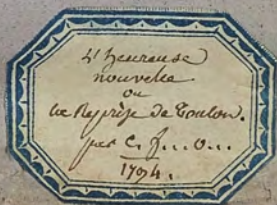 L'heureuse
nouvelle
ou
La Reprise de Toulon.
par C.
1794.